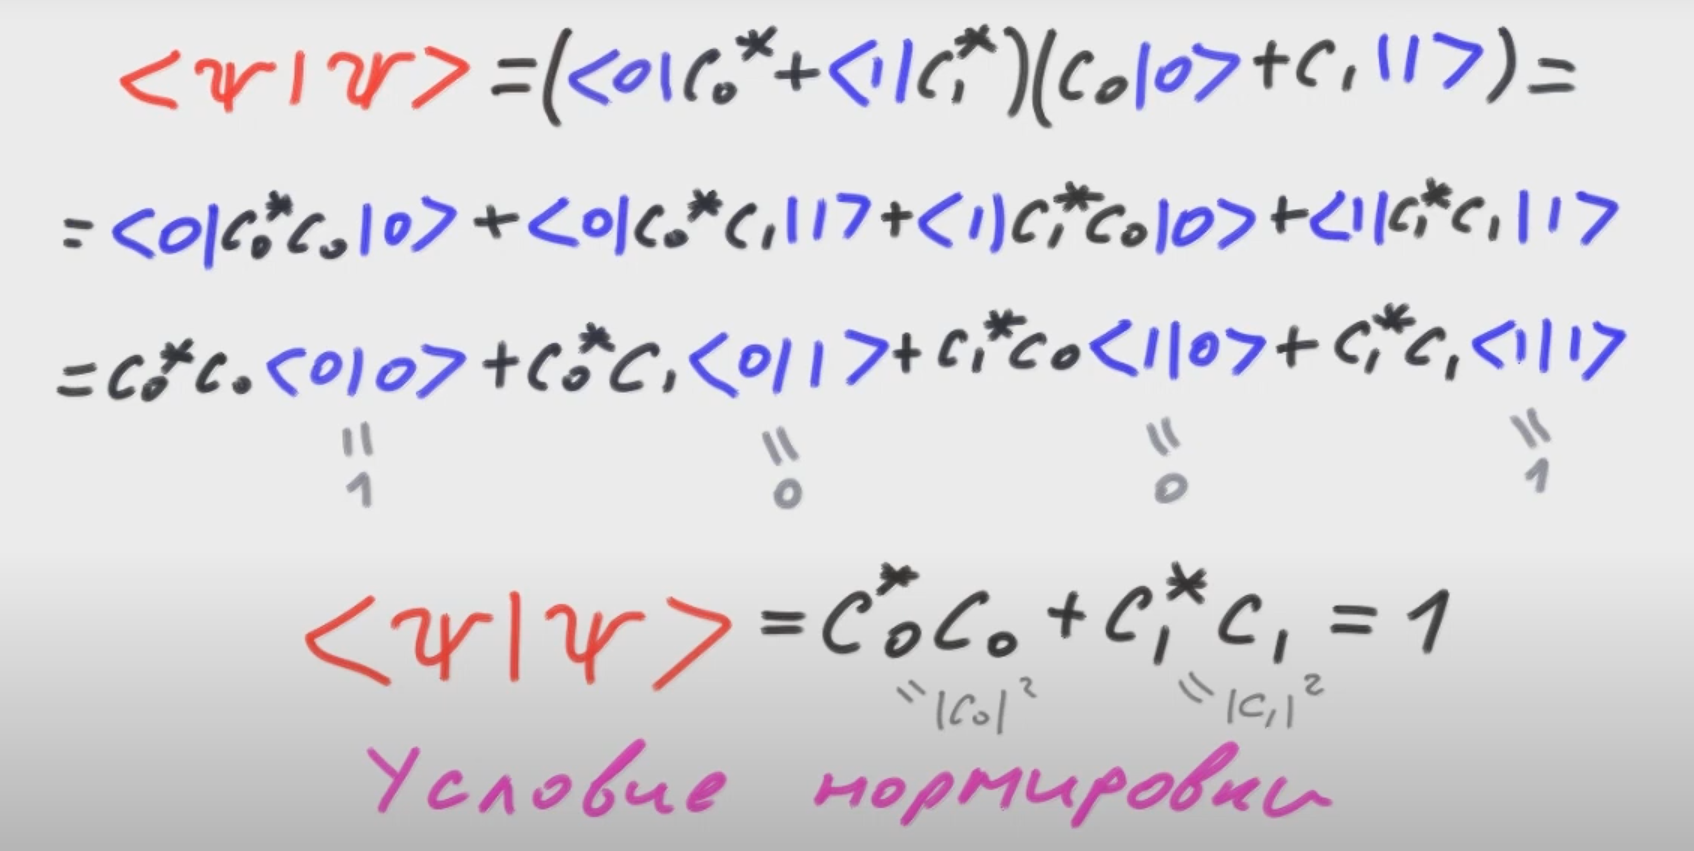 <ψ|ψ> = (<0|C₀* + <1|C₁*)(C₀|0> + C₁|1>) =
= <0|C₀*C₀|0> + <0|C₀*C₁|1> + <1|C₁*C₀|0> + <1|C₁*C₁|1>
= C₀*C₀<0|0> + C₀*C₁<0|1> + C₁*C₀<1|0> + C₁*C₁<1|1>
= = = =
1 0 0 1
<ψ|ψ> = C₀*C₀ + C₁*C₁ = 1
= |C₀|² = |C₁|²
Условие нормировки